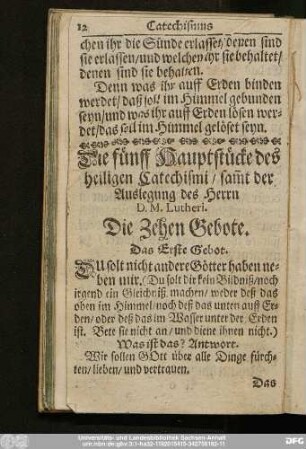 12 Catechismus
chen ihr die Sünde erlasset/denen sind
sie erlassen/und welchen ihr sie behaltet/
denen sind sie behalten.
Denn was ihr auff Erden binden
werdet/daß sol im Himmel gebunden
seyn/und was ihr auff Erden lösen wer-
det/das soll im Himmel gelöset seyn.
Die fünff Hauptstücke des
heiligen Catechismi/samt der
Auslegung des Herrn
D. M. Lutheri.
Die Zehen Gebote.
Das Erste Gebot.
DU solt nicht andere Götter haben ne-
ben mir. (Du solt dir kein Bildniß/noch
irgend ein Gleichniß machen/weder deß das
oben im Himmel/noch deß das unten auff Er-
den/oder deß das im Wasser unter der Erden
ist. Bete sie nicht an/und diene ihnen nicht.)
Was ist das? Antwort.
Wir sollen GOtt über alle Dinge fürch-
ten/lieben/und vertrauen.
Das
Universitäts- und Landesbibliothek Sachsen-Anhalt
urn:nbn:de:gbv:3:1-ha33-1192015415-342756162-11